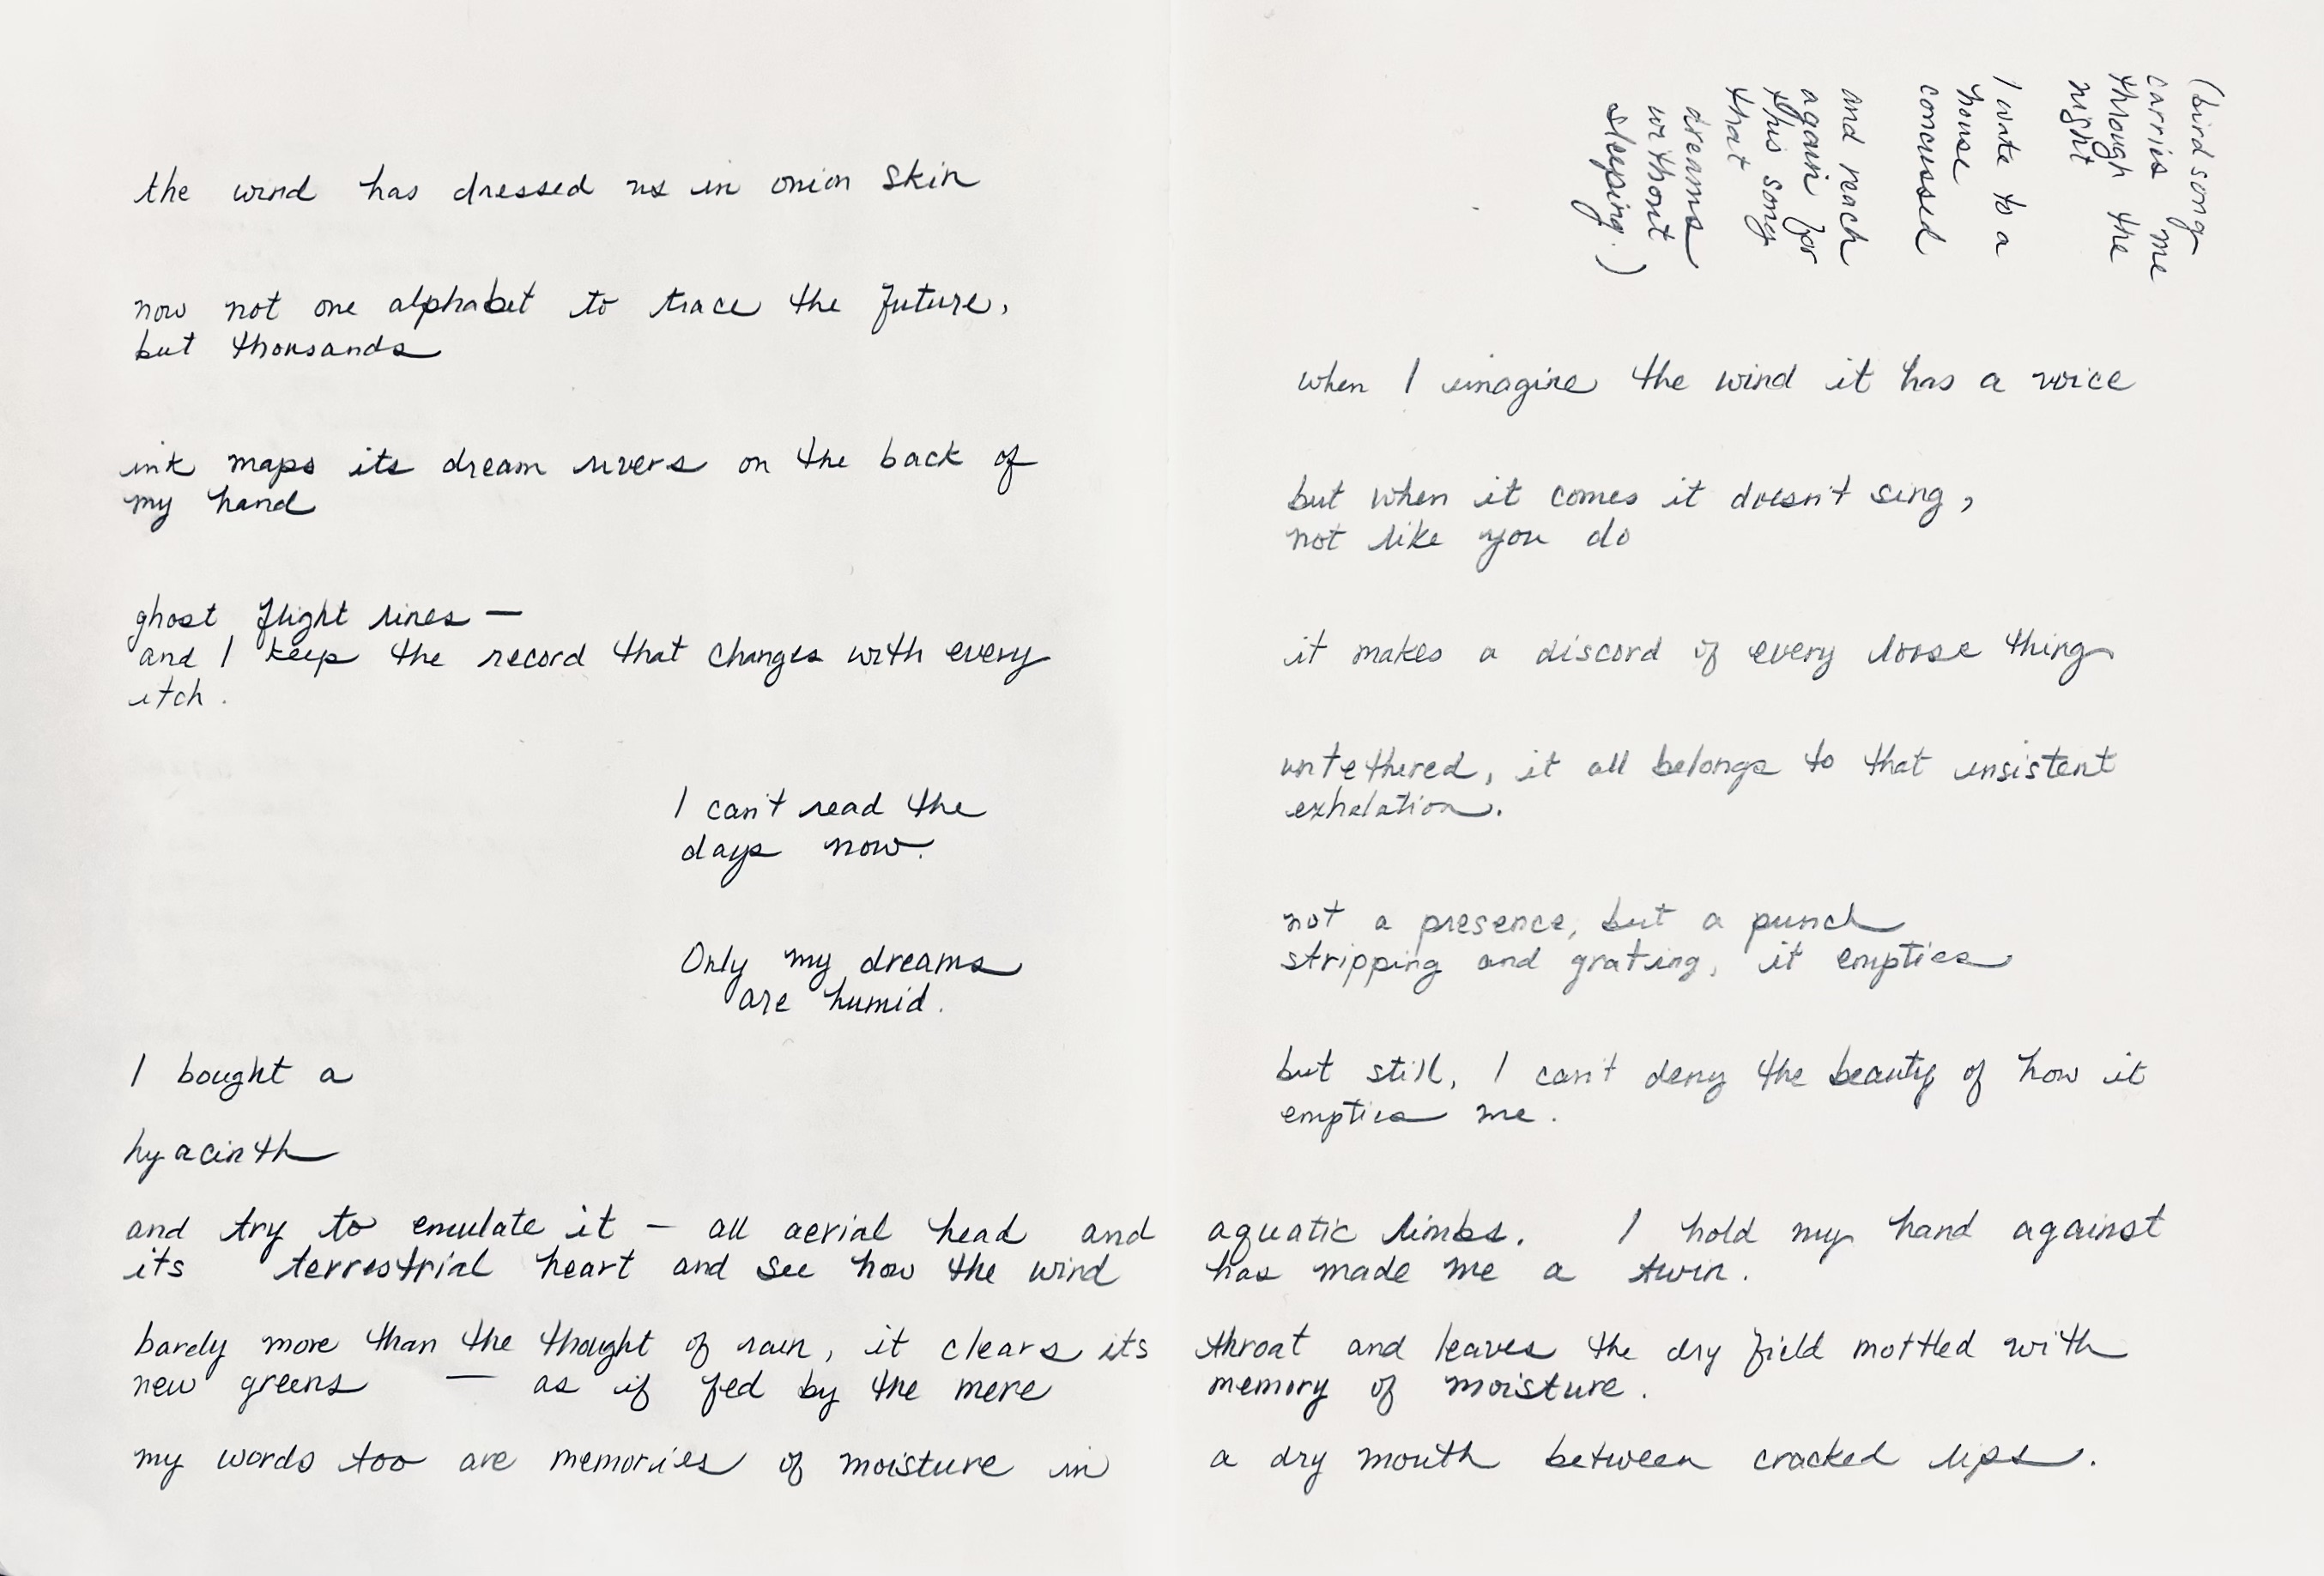 the wind has dressed us in onion skin
now not one alphabet to trace the future,
but thousands
ink maps its dream rivers on the back of
my hand
ghost flight lines —
and I keep the record that changes with every
itch.
I can't read the
days now.
Only my dreams
are humid.
I bought a
hyacinth
(birdsong
carries me
through the
night
I wake to a
house
concussed
and reach
again for
this song
that
dreams
without
sleeping.)
when I imagine the wind it has a voice
but when it comes it doesn't sing,
not like you do
it makes a discord of every loose thing
untethered, it all belongs to that insistent
exhalation.
not a presence, but a punch
stripping and grating, it empties
but still, I can't deny the beauty of how it
empties me.
and try to emulate it — all aerial head and aquatic limbs. I hold my hand against
its terrestrial heart and see how the wind has made me a twin.
barely more than the thought of rain, it clears its throat and leaves the dry field mottled with
new greens — as if fed by the mere memory of moisture.
my words too are memories of moisture in a dry mouth between cracked lips.